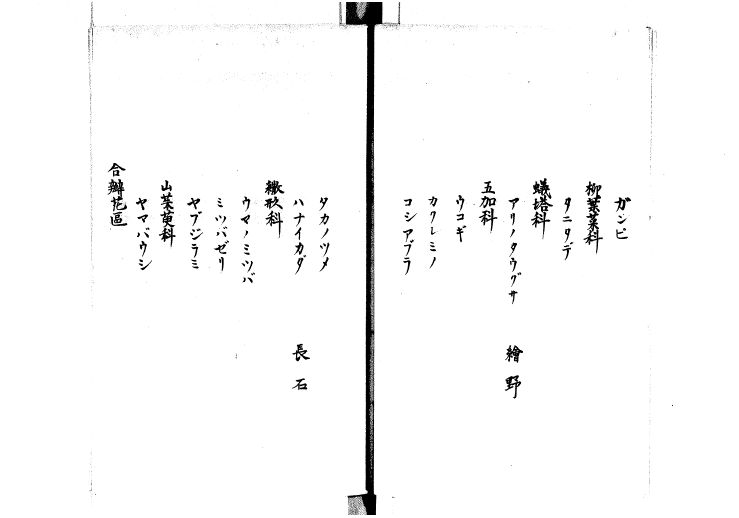 ガンピ
柳葉菜科
タニタデ
蟻塔科
アリノタウグサ 繪野
五加科
ウコギ
カクレミノ
コシアブラ
タカノツメ
ハナイカダ 長石
繖形科
ウマノミツバ
ミツバゼリ
ヤブジラミ
山茱萸科
ヤマバウシ
合瓣花區